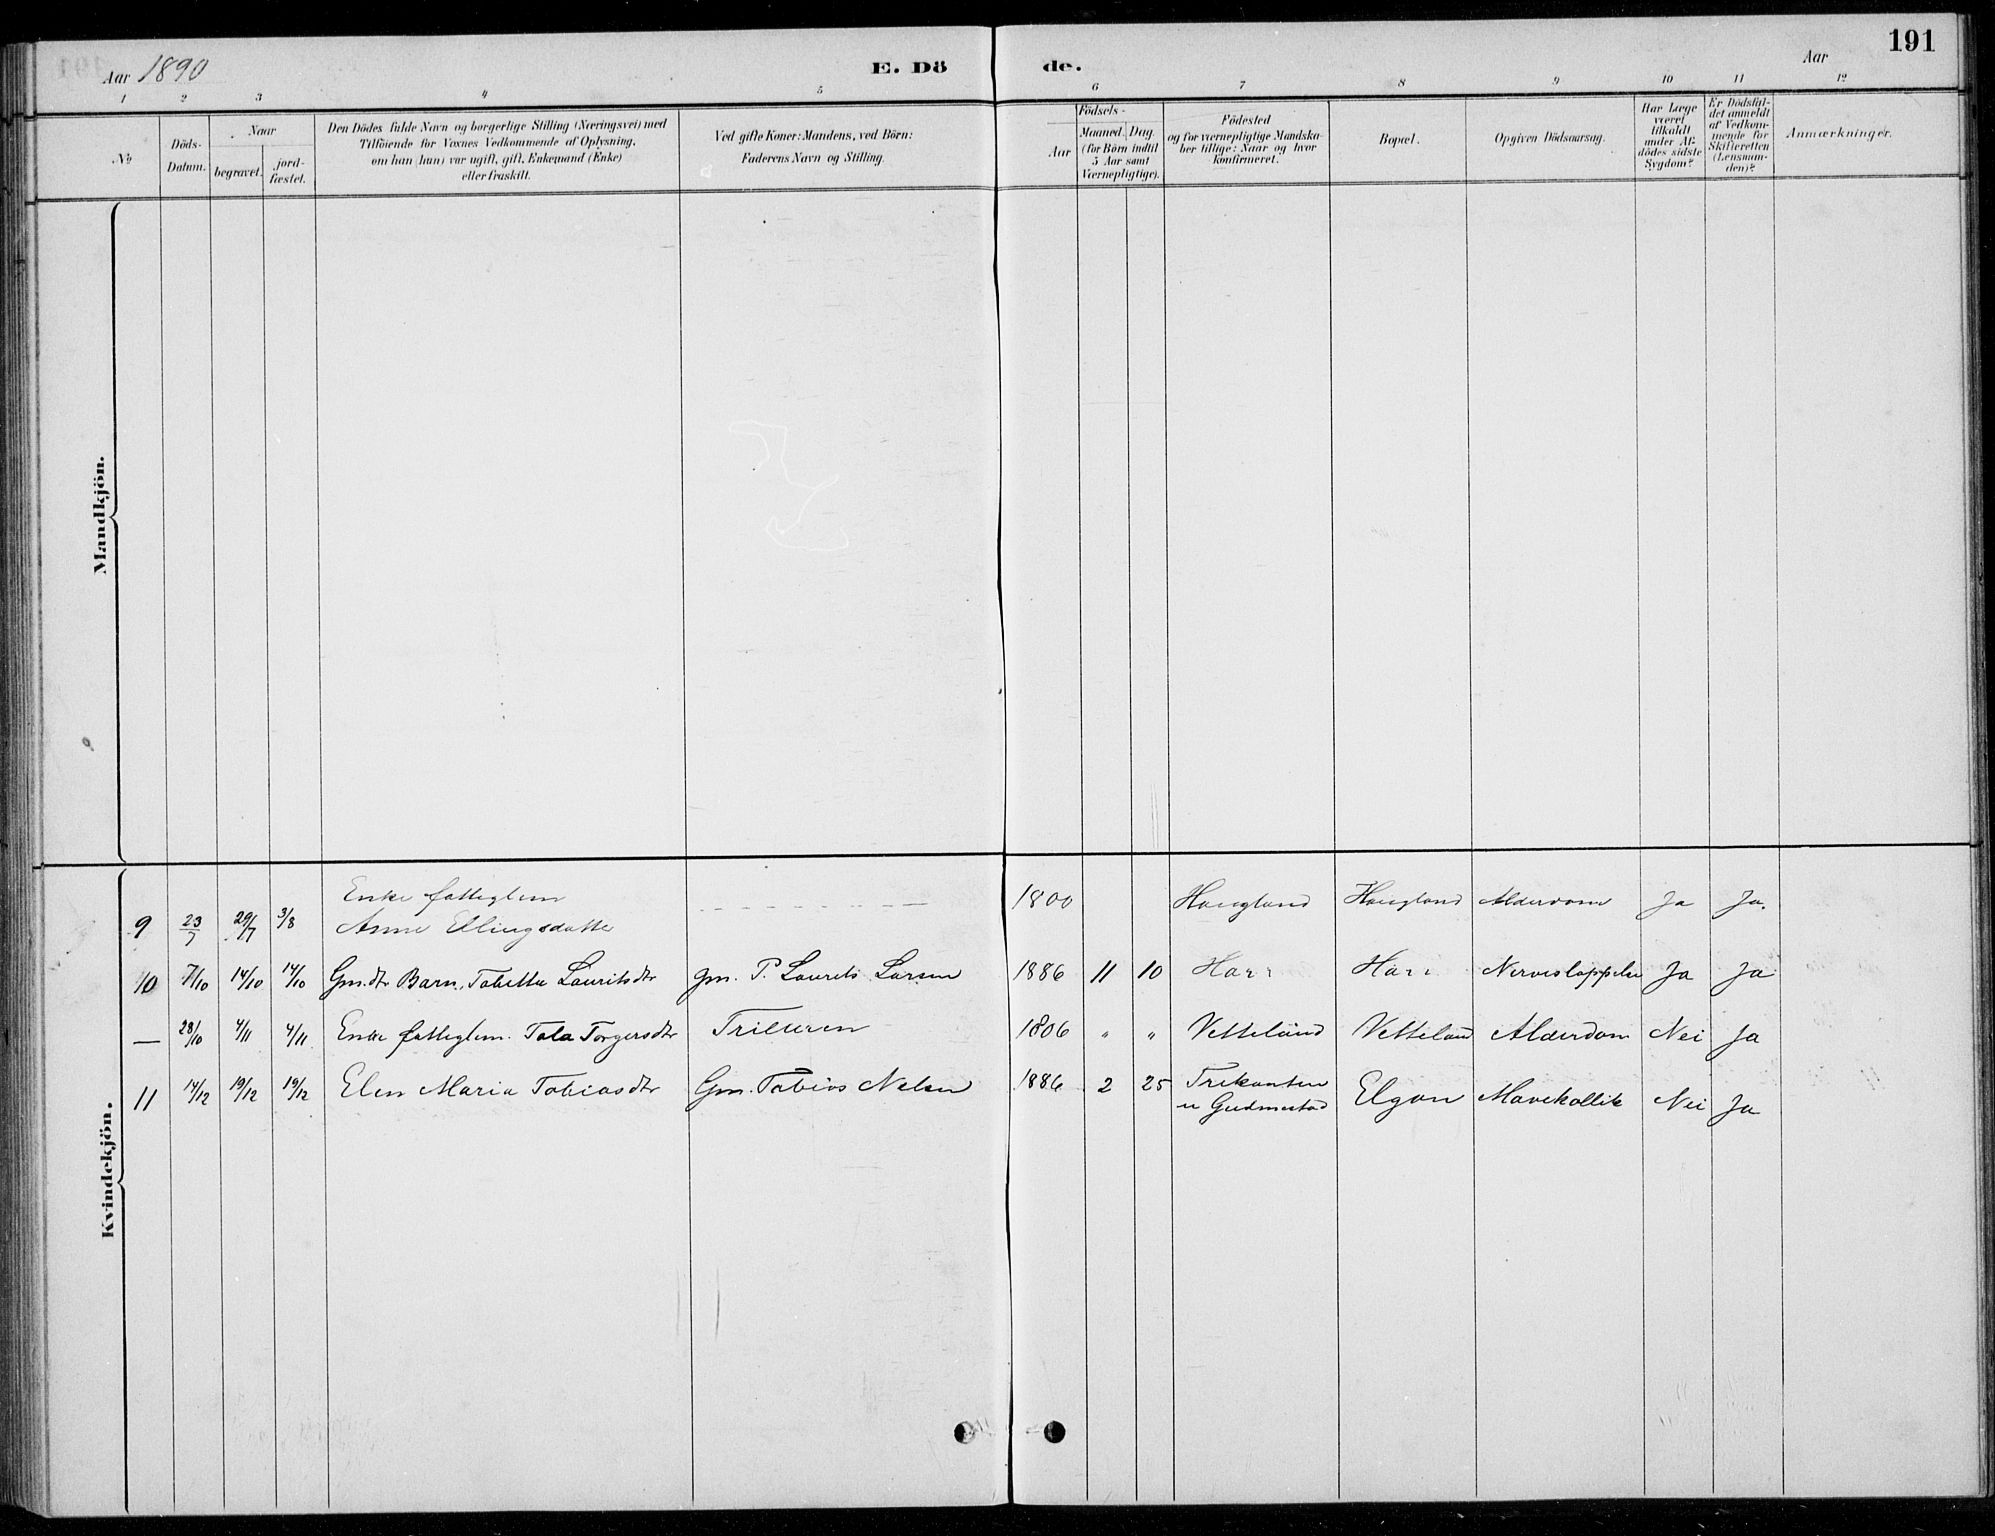 191
Aar 1890
E. Dö
de.
Aar
1 2 3 4 5 6 7 8 9 10 11 12
№
Döds-
Datum.
Naar
begravet.
jord-
fæstet.
Den Dödes fulde Navn og borgerlige Stilling (Næringsvei) med
Tilföiende for Voxnes Vedkommende af Oplysning,
om han (hun) var ugift, gift, Enkemand (Enke)
eller fraskilt.
Ved gifte Koner: Mandens, ved Börn:
Faderens Navn og Stilling.
Födsels-
Aar
Maaned.
Dag.
(for Börn indtil
5 Aar samt
Værnepligtige).
Födested
og for værnepligtige Mandska-
ber tillige: Naar og hvor
konfirmeret.
Bopæl.
Opgiven Dödsaarsag.
Har Læge
været
tilkaldt
under Af-
dödes sidste
Sygdom?
Er Dödsfal-
det anmeldt
af Vedkom-
mende for
Skifteretten
(Lensman-
den)?
Anmærkninger.
Mandkjön.
Kvindekjön.
Enke fattiglem
9 23/7 29/7 3/8 Anne Ellingsdatter 1800 Haugland Haugland Alderdom Ja Ja.
10 7/10 14/10 14/10 Gm.dtr Barn. Tabitta Lauritsdtr gm. P. Laurits Larsen 1886 11 10 Harr Harr Nerveslappelse Ja Ja
— 28/10 4/11 4/11 Enke fattiglem. Tala Torgersdtr 1806 " " Vetteland Vetteland Alderdom Nei Ja
11 14/12 19/12 19/12 Elen Maria Tobiasdtr Gm. Tobias Nelsen 1886 2 25 Trekanten
u Gudmestad Elgan Mavekollik Nei Ja